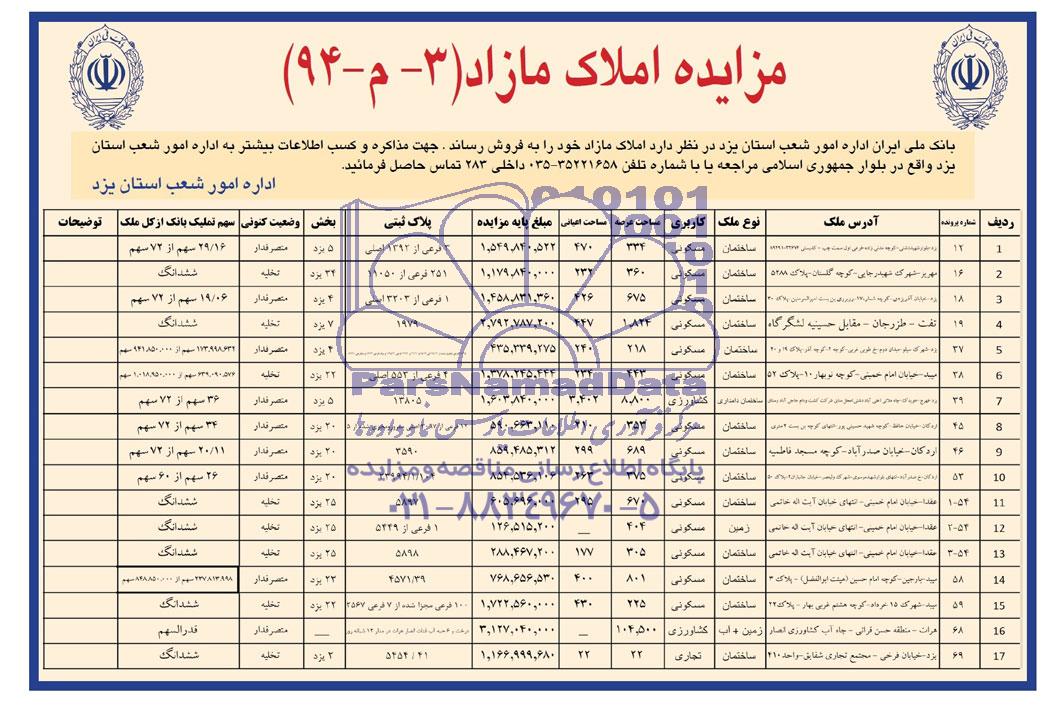 مزایده املاک مازاد(۳- م-۹۴)
بانک ملی ایران اداره امور شعب استان یزد در نظر دارد املاک مازاد خود را به فروش رساند . جهت مذاکره و کسب اطلاعات بیشتر به اداره امور شعب استان
یزد واقع در بلوار جمهوری اسلامی مراجعه یا با شماره تلفن ۳۵۲۲۱۶۵۸-۰۳۵ داخلی ۲۸۳ تماس حاصل فرمائید.
اداره امور شعب استان یزد
ردیف شماره پرونده آدرس ملک نوع ملک کاربری مساحت عرصه مساحت اعیانی مبلغ پایه مزایده پلاک ثبتی بخش وضعیت کنونی سهم تملیک بانک از کل ملک توضیحات
1 ۱۲ ساختمان مسکونی ۳۳۴ ۴۷۰ ۱,۵۴۹,۸۴۰,۵۲۲ ۳ فرعی از ۱۳۹۲ اصلی ۵ یزد متصرفدار ۲۹/۱۶ سهم از ۷۲ سهم
2 ۱۶ مهریز-شهرک شهیدرجایی-کوچه گلستان-پلاک ۵۲۸۸ ساختمان مسکونی ۳۶۰ ۲۳۲ ۱,۱۷۹,۸۴۰,۰۰۰ ۲۵۱ فرعی از ۱۱۰۵۰ ۳۴ یزد تخلیه ششدانگ
3 ۱۸ ساختمان مسکونی ۶۷۵ ۴۲۶ ۱,۴۵۸,۸۳۱,۳۶۰ ۱ فرعی از ۳۲۰۳ اصلی ۴ یزد متصرفدار ۱۹/۰۶ سهم از ۷۲ سهم
4 ۱۹ تفت - طزرجان - مقابل حسینیه لشگرگاه ساختمان مسکونی ۱,۸۲۴ ۴۴۷ ۲,۷۹۲,۷۸۷,۲۰۰ ۱۹۷۹ ۷ یزد تخلیه ششدانگ
5 ۲۷ ساختمان مسکونی ۲۱۸ ۲۴۰ ۴۳۵,۳۳۹,۲۷۵ ۴ یزد متصرفدار ۱۷۳,۹۹۸,۶۳۲ سهم از ۹۴۱,۸۵۰,۰۰۰ سهم
6 ۲۸ میبد-خیابان امام خمینی-کوچه نوبهار ۱۰-پلاک ۵۲ ساختمان مسکونی ۴۴۳ ۲۳۴ ۱,۳۷۸,۲۴۵,۴۴۴ ۴ فرعی از ۵۵۳ اصلی ۲۲ یزد تخلیه ۶۳۹,۰۹۰,۵۷۶ سهم از ۱,۰۱۸,۹۵۰,۰۰۰ سهم
7 ۳۹ ساختمان دامداری کشاورزی ۸,۸۰۰ ۳,۴۰۲ ۱,۶۰۳,۸۴۰,۰۰۰ ۱۳۸۰۵ ۵ یزد متصرفدار ۳۶ سهم از ۷۲ سهم
8 ۴۵ ساختمان مسکونی ۵۹۰,۶۶۳,۱۱۰ ۲۰ یزد متصرفدار ۳۴ سهم از ۷۲ سهم
9 ۴۶ اردکان-خیابان صدرآباد-کوچه مسجد فاطمیه ساختمان مسکونی ۶۸۹ ۲۹۹ ۸۵۹,۴۸۵,۳۱۲ ۳۵۹۰ ۲۰ یزد متصرفدار ۲۰/۱۱ سهم از ۷۲ سهم
10 ۵۳ ساختمان مسکونی ۳۷۵ ۲۶۳ ۸۵۴,۵۳۶,۱۱۰ ۲۰ یزد متصرفدار ۲۶ سهم از ۶۰ سهم
11 ۱-۵۴ عقدا-خیابان امام خمینی- انتهای خیابان آیت اله خاتمی ساختمان مسکونی ۶۷۰ ۲۹۵ ۶۰۵,۶۹۶,۰۰۰ ۵۸۹۷ ۲۵ یزد تخلیه ششدانگ
12 ۲-۵۴ عقدا-خیابان امام خمینی- انتهای خیابان آیت اله خاتمی زمین مسکونی ۴۰۴ __ ۱۲۶,۵۱۵,۲۰۰ ۱ فرعی از ۵۴۴۹ ۲۵ یزد تخلیه ششدانگ
13 ۳-۵۴ عقدا-خیابان امام خمینی- انتهای خیابان آیت اله خاتمی ساختمان مسکونی ۳۰۵ ۱۷۷ ۲۸۸,۴۶۷,۲۰۰ ۵۸۹۸ ۲۵ یزد تخلیه ششدانگ
14 ۵۸ میبد-یارجین-کوچه امام حسین (هیئت ابوالفضل) - پلاک ۳ ساختمان مسکونی ۸۰۱ ۴۰۰ ۷۶۸,۶۵۶,۵۳۰ ۴۵۷۱/۳۹ ۲۳ یزد متصرفدار ۲۳۷,۸۱۳,۹۹۸ سهم از ۸۴۸,۸۵۰,۰۰۰ سهم
15 ۵۹ میبد-شهرک ۱۵ خرداد-کوچه هشتم غربی بهار - پلاک۲۲ ساختمان مسکونی ۲۲۵ ۴۳۰ ۱,۷۲۲,۵۶۰,۰۰۰ ۱۰۰ فرعی مجزا شده از ۷ فرعی ۲۵۶۷ ۲۲ یزد تخلیه ششدانگ
16 ۶۸ هرات - منطقه حسن قرائی - چاه آب کشاورزی انصار زمین + آب کشاورزی ۱۰۴,۵۰۰ __ ۳,۱۲۷,۰۴۰,۰۰۰ __ متصرفدار قدرالسهم
17 ۶۹ یزد-خیابان فرخی - مجتمع تجاری شقایق-واحد۴۱۰ ساختمان تجاری ۲۲ ۲۲ ۱,۱۶۶,۹۹۹,۶۸۰ ۵۴۵۴ / ۴۱ ۲ یزد تخلیه ششدانگ
ParsNamadData
پایگاه اطلاع رسانی مناقصه و مزایده
۰۲۱-۸۸۳۴۹۶۷۰-۵